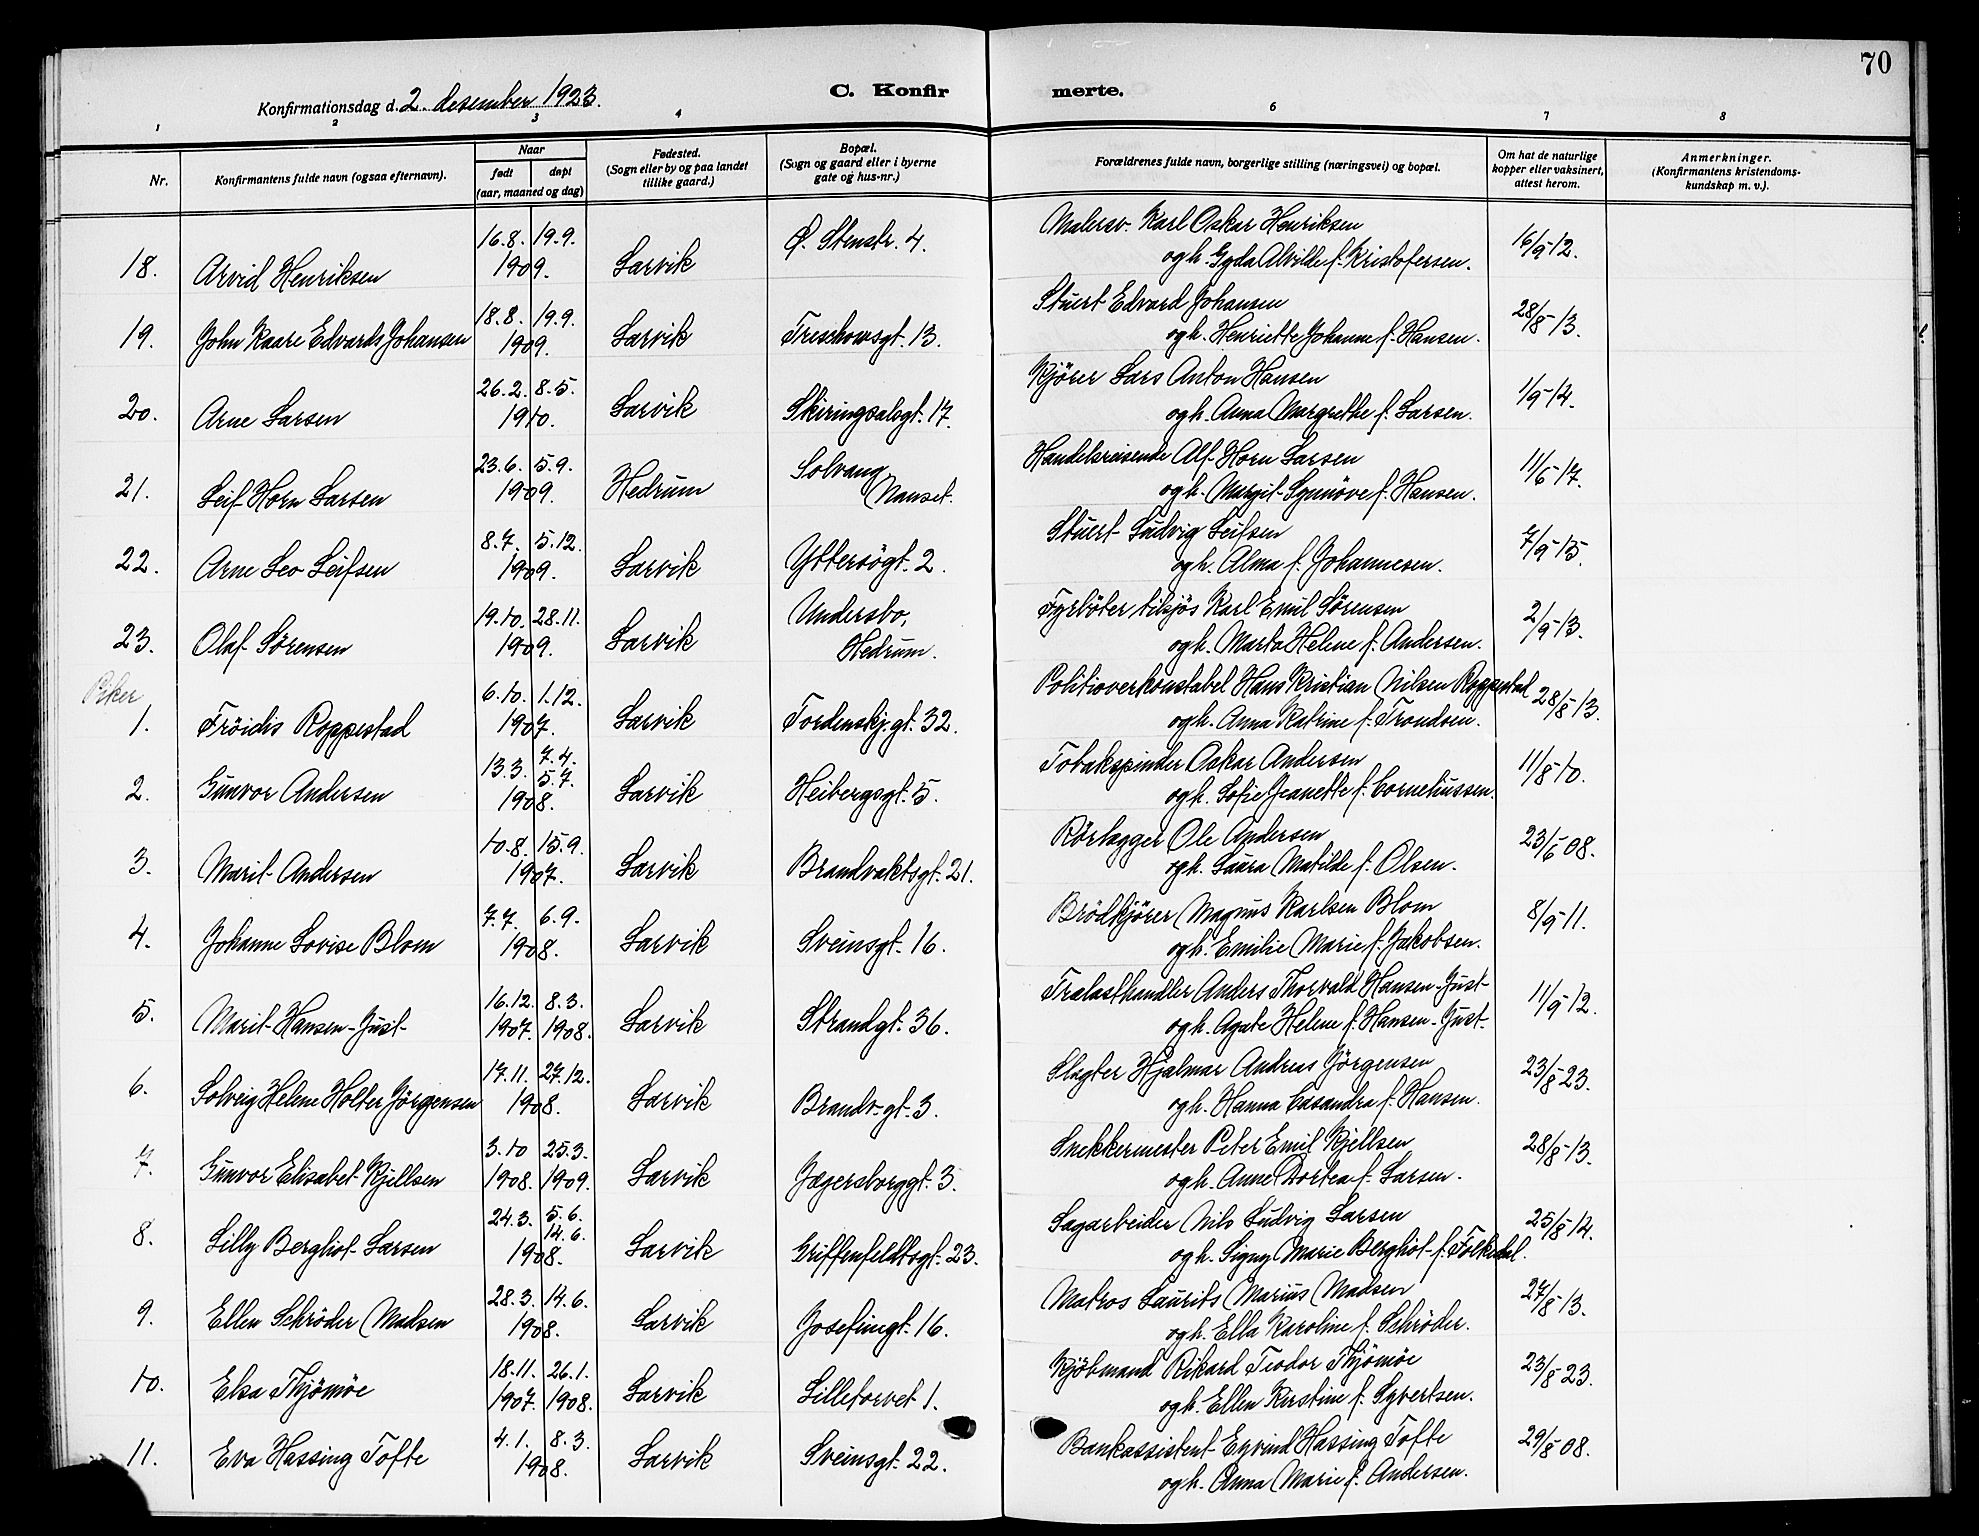 70
Konfirmationsdag d. 2. desember 1923.
C. Konfirmerte.
1 2 3 4 6 7 8
Nr.
Konfirmantens fulde navn (ogsaa efternavn).
Naar
født døpt
(aar, maaned og dag)
Fødested.
(Sogn eller by og paa landet
tillike gaard.)
Bopæl.
(Sogn og gaard eller i byerne
gate og hus-nr.)
Forældrenes fulde navn, borgerlige stilling (næringsvei) og bopæl.
Om hat de naturlige
kopper eller vaksinert,
attest herom.
Anmerkninger.
(Konfirmantens kristendoms-
kundskap m. v.).
18. Arvid Henriksen 16.8. 19.9. 1909. Larvik Ø. Stenstr. 4. Malersv. Karl Oskar Henriksen
og h. Gyda Alvilde f. Kristofersen. 16/9-12.
19. John Kaare Edvards Johansen 18.8. 19.9. 1909. Larvik Treschowsgt. 13. Stuert Edvard Johansen
og h. Henriette Johanne f. Hansen. 28/8-13.
20. Arne Larsen 26.2. 8.5. 1910. Larvik Skiringsalsgt. 17. Kjører Lars Anton Hansen
og h. Anna Margrethe f. Larsen. 1/9-14.
21. Leif Horn Larsen 23.6. 5.9. 1909. Hedrum Solvang Nanset. Handelsreisende Alf Horn Larsen
og h. Margit Synnöve f. Hansen. 11/6-17.
22. Arne Leo Leifsen 8.7. 5.12. 1909. Larvik Yttersögt. 2. Stuert Ludvig Leifsen
og h. Alma f. Johannesen. 7/9-15.
23. Olaf Sörensen 19.10. 28.11. 1909. Larvik Undersbo, Hedrum. Fyrböter tilsjös Karl Emil Sörensen
og h. Marta Helene f. Andersen. 2/9-13.
Piker
1. Fröidis Roppestad 6.10. 1.12. 1907. Larvik Tordenskj.gt. 32. Politioverkonstabel Hans Kristian Nilsen Roppestad
og h. Anna Katrine f. Trondsen. 28/8-13.
2. Gunvor Andersen 13.3. 7.4. 5.7. 1908. Larvik Heibergsgt. 5. Tobakspinder Oskar Andersen
og h. Sofie Jeanette f. Corneliussen. 11/8-10.
3. Marit Andersen 10.8. 15.9. 1907. Larvik Brandvaktsgt. 21. Rörlægger Ole Andersen
og h. Laura Matilde f. Olsen. 23/6-08.
4. Johanne Lovise Blom 7.7. 6.9. 1908. Larvik Sveinsgt. 16. Brödkjörer Magnus Karlsen Blom
og h. Emilie Marie f. Jakobsen. 8/9-11.
5. Marit Hansen-Just 16.12. 1907. 8.3. 1908. Larvik Strandgt. 36. Trælasthandler Anders Thorvald Hansen-Just
og h. Agate Helene f. Hansen-Just. 11/9-12.
6. Solveig Helene Holter Jörgensen 17.11. 27.12. 1908. Larvik Brandv.gt. 3. Slagter Hjalmar Andreas Jörgensen
og h. Hanna Casandra f. Hansen. 23/8-23.
7. Gunvor Elisabet Kjellsen 3.10 1908. 25.3. 1909. Larvik Jægersborggt. 3. Snekkermester Peter Emil Kjellsen
og h. Anne Dortea f. Larsen. 28/8-13.
8. Lilly Bergliot Larsen 24.3. 5.6. 14.6. 1908. Larvik Griffenfeldtsgt. 23. Sagarbeider Nils Ludvig Larsen
og h. Signy Marie Bergliot f. Folkedal. 25/8-14.
9. Ellen Schröder Madsen 28.3. 14.6. 1908. Larvik Josefinegt. 16. Matros Laurits Marius Madsen
og h. Ella Karoline f. Schröder. 27/8-13.
10. Elsa Thjömöe 18.11. 1907. 26.1. 1908. Larvik Lilletorvet 1. Kjöbmand Rikard Teodor Thjömöe
og h. Ellen Kirstine f. Syvertsen. 23/8-23.
11. Eva Hassing Tofte 4.1. 8.3. 1908. Larvik Sveinsgt. 22. Bankassistent Eyvind Hassing Tofte
og h. Anna Marie f. Andersen. 29/8-08.